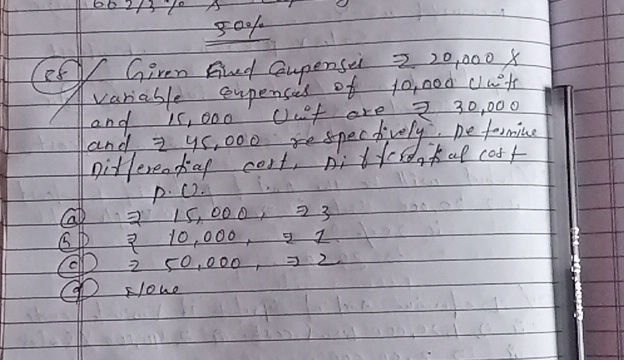 50%
28 Given fixed Expenses ₹ 20,000 &
variable expenses of 10,000 Units
and 15,000 Unit are ₹ 30,000
and ₹ 45,000 respectively. Determine
Differential cost, Differential cost
P.U.
(a) ₹ 15,000, ₹ 3
(b) ₹ 10,000, ₹ 1
(c) ₹ 50,000, ₹ 2
(d) None